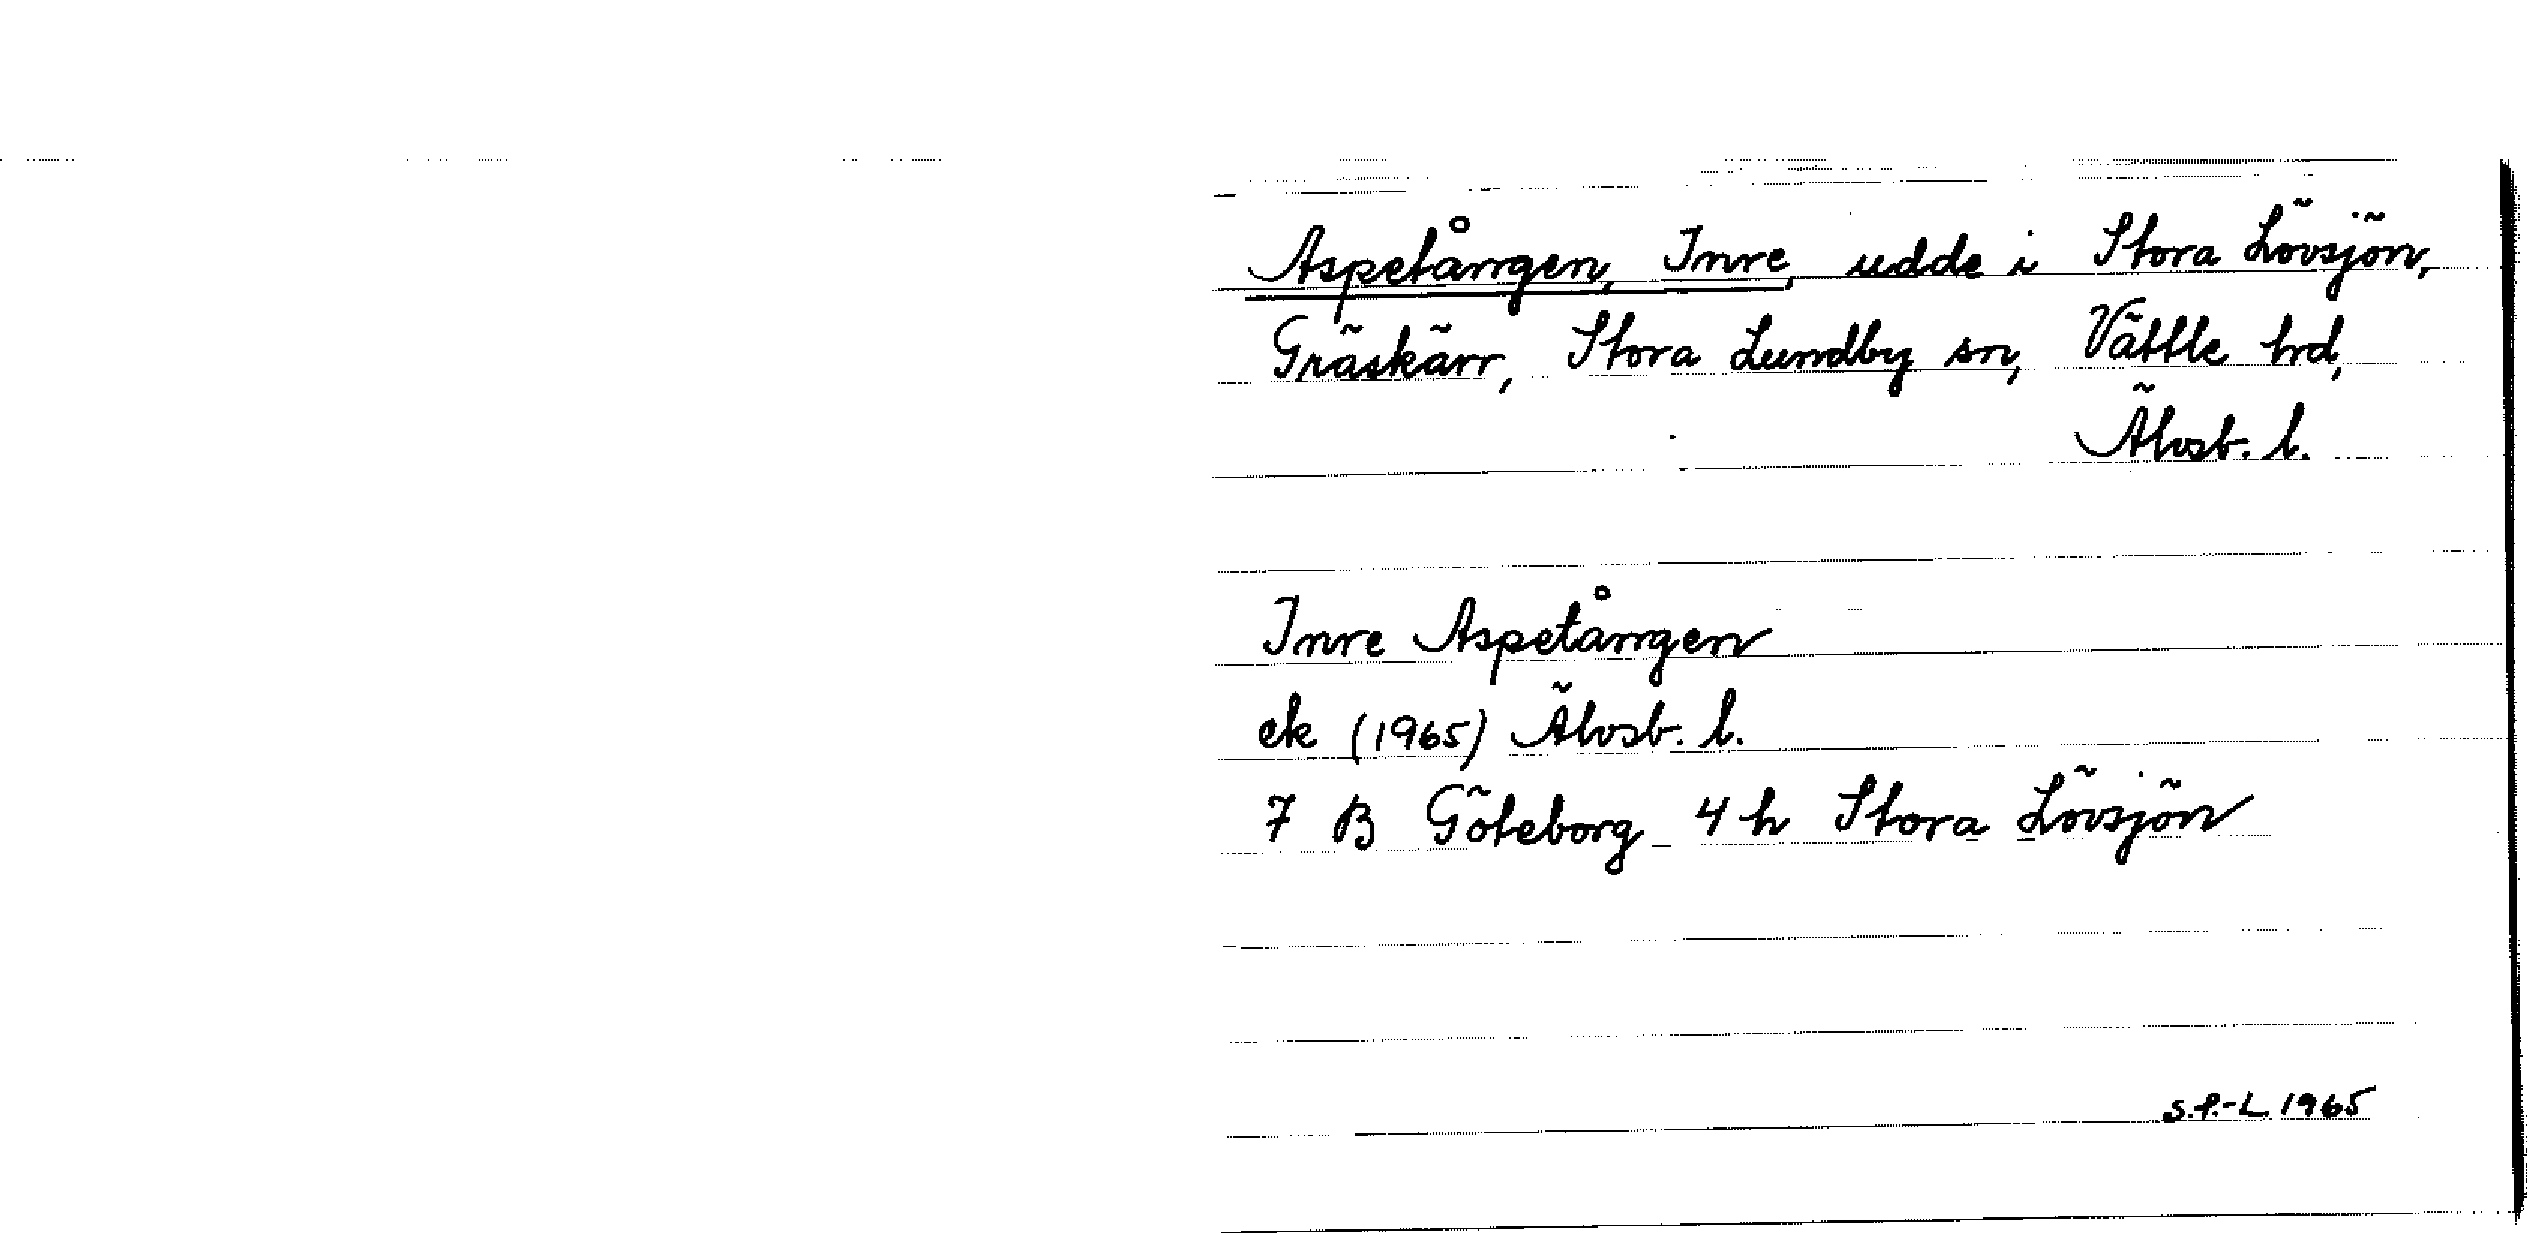 Aspetången, Inre, udde i Stora Lövsjön,
Gräskärr, Stora Lundby sn, Vättle hrd,
Älvsb. l.
Inre Aspetången
ek (1965) Älvsb. l.
7 B Göteborg 4 h Stora Lövsjön
S.P.-L. 1965